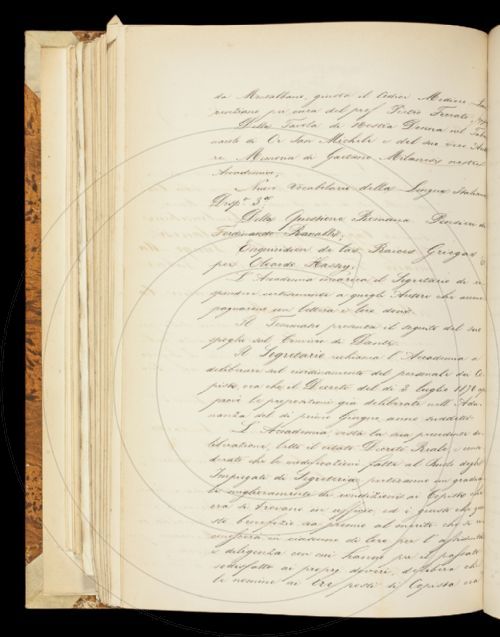 da Montalbano, giusta il Codice Mediceo Lau
renziano per cura del prof. Pietro Ferrato.
Della Tavola di Nostra Donna nel Taber
nacolo di Or San Michele e del suo vero Auto
re. Memoria di Gaetano Milanesi nostro
Accademico.
Nuovo Vocabolario della Lingua Italiana
Disp.ª 3ª
Della Questione Romana Pensieri di
Ferdinando Ranalli.
Enquiridion de las Raices Griegas
per Hassey.
L'Accademia incarica il Segretario di ri
spondere cortesemente a quegli Autori che accom
pagnarono con lettera i loro doni.
Il presenta il seguito del suo
spoglio sul Convivio di Dante.
Il Segretario richiama l'Accademia a
deliberare sul riordinamento del personale dei Co
pisti, ora che il Decreto del dì 2 luglio 1870 ap
provò le proposizioni già deliberate nell'Adu
nanza del dì primo Giugno anno suddetto.
L'Accademia, vista la sua precedente de
liberazione, letto il citato Decreto Reale e consi
derato che le modificazioni fatte al Ruolo degli
Impiegati di Segreteria portarono un grado
le miglioramento di condizione ai Copisti che
ora si trovano in ufficio, ed è giusto che
sto benefizio sia premio al merito che si ri
conoscerà in ciascuno di loro per l'assiduità
e diligenza con cui hanno per il passato
soddisfatto ai propri doveri, delibera che
le nomine ai tre posti di Copista ora